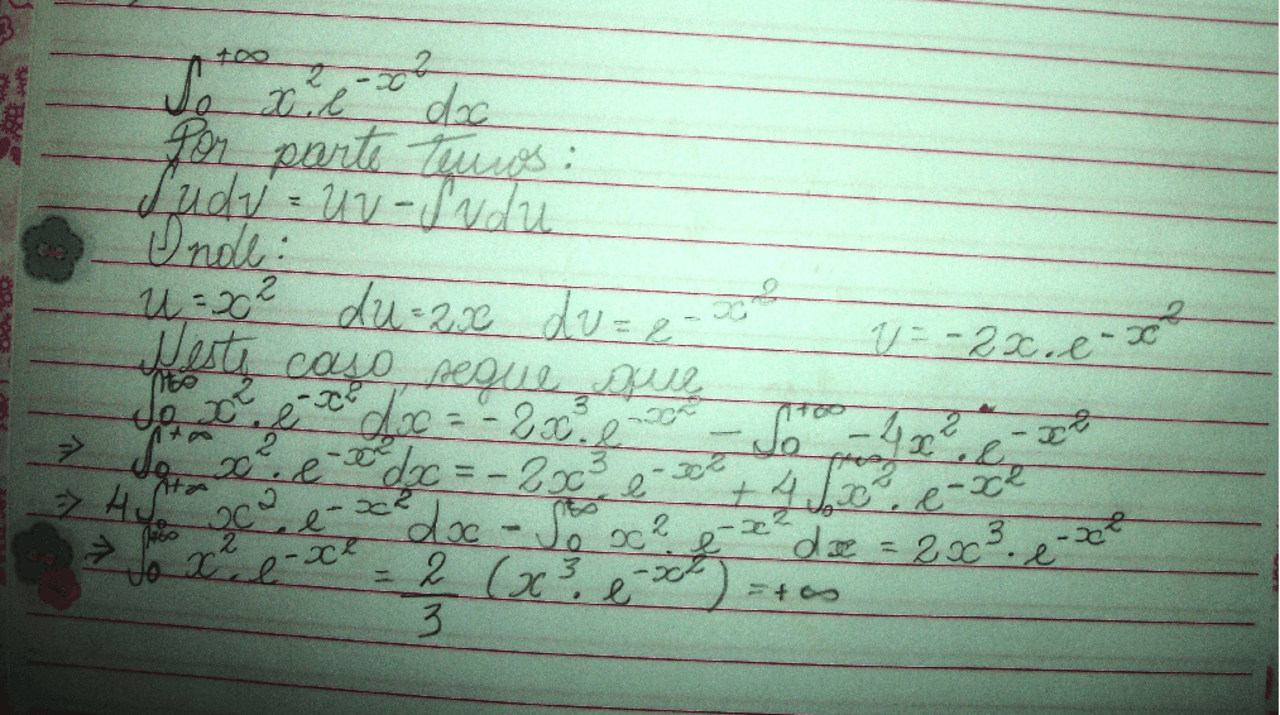 ∫₀^{+∞} x².e^{-x²} dx
Por parte temos:
∫udv = uv - ∫vdu
Onde:
u = x² du = 2x dv = e^{-x²} v = -2x.e^{-x²}
Neste caso, segue que
∫₀^{+∞} x².e^{-x²} dx = -2x³.e^{-x²} - ∫₀^{+∞} -4x².e^{-x²}
⇒ ∫₀^{+∞} x².e^{-x²} dx = -2x³.e^{-x²} + 4∫₀^{+∞} x².e^{-x²}
⇒ 4∫₀^{+∞} x².e^{-x²} dx - ∫₀^{+∞} x².e^{-x²} dx = 2x³.e^{-x²}
⇒ ∫₀^{+∞} x².e^{-x²} = 2/3 (x³.e^{-x²}) = +∞